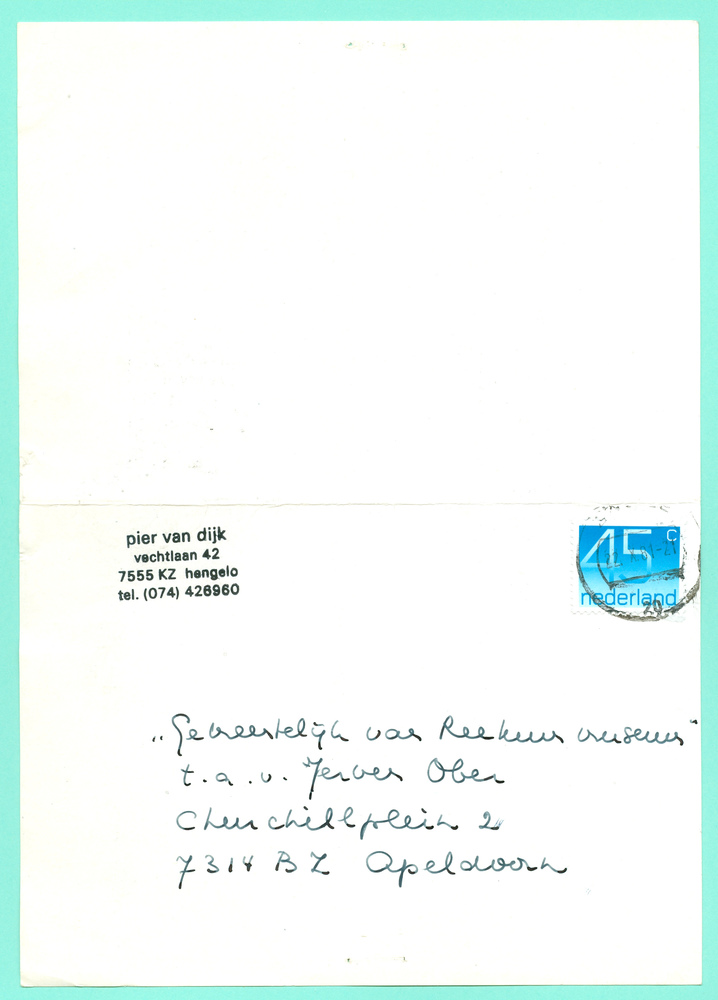 pier van dijk
vechtlaan 42
7555 KZ hengelo
tel. (074) 426960
45 c
nederland
„Gemeentelijk van Reekum museum"
t.a.v. Jerven Ober
Churchillplein 2
7314 BZ Apeldoorn